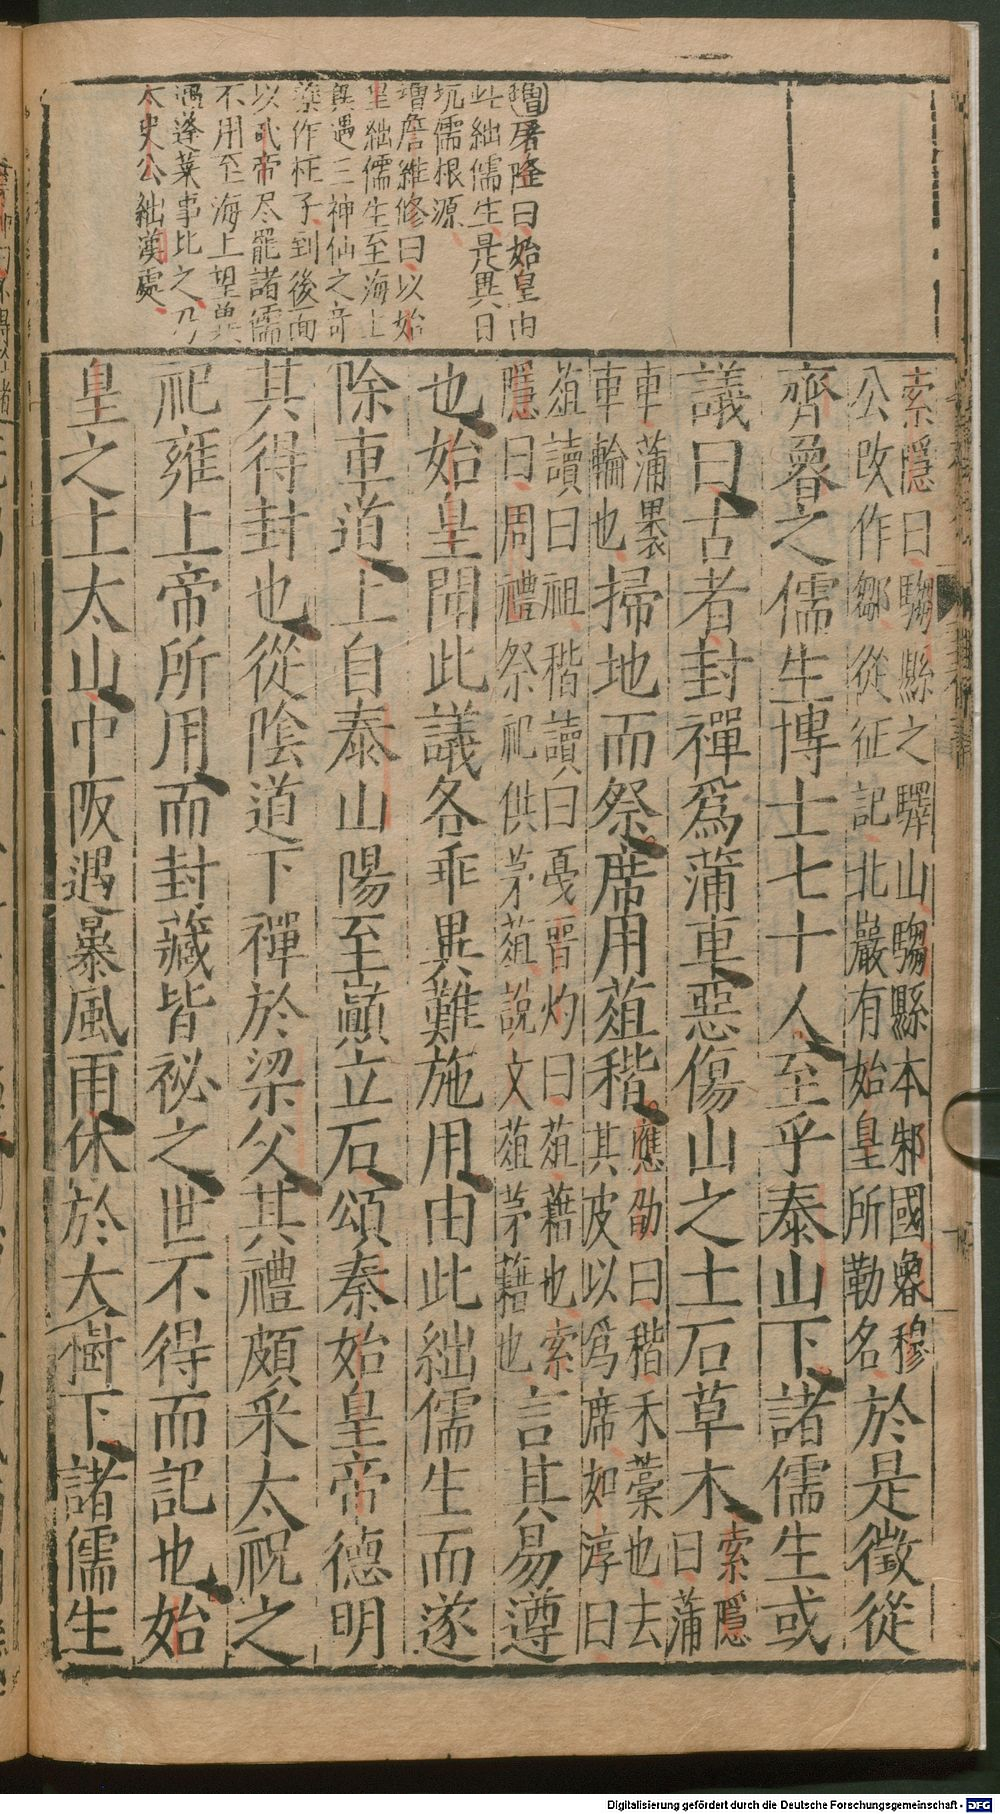 增屠隆曰始皇由
此絀儒生是異日
坑儒根源
增詹維修曰以始
皇絀儒生至海上
與遇三神仙之奇
築作枉子到後面
以武帝尽罷諸儒
不用至海上望冀
遇蓬萊事比之乃
太史公絀漢處
索隱曰騶縣之驛山騶縣本邾國魯穆
公改作鄒從征記北巖有始皇所勒名
於是徵從
齊魯之儒生博士七十人至乎泰山下諸儒生或
議曰古者封禪爲蒲車惡傷山之土石草木
索隱
曰蒲
車蒲裹
車輪也
掃地而祭席用葅稭
應劭曰稭禾藁也去
其皮以爲席如淳曰
葅讀曰租稭讀曰戞晋灼曰葅藉也索
隱曰周禮祭祀供茅葅說文葅茅藉也
言其易遵
也始皇聞此議各乖異難施用由此絀儒生而遂
除車道上自泰山陽至巔立石頌秦始皇帝德明
其得封也從陰道下禪於梁父其禮頗采太祝之
祀雍上帝所用而封藏皆祕之世不得而記也始
皇之上太山中阪遇暴風雨休於大樹下諸儒生
Digitalisierung gefördert durch die Deutsche Forschungsgemeinschaft - DFG